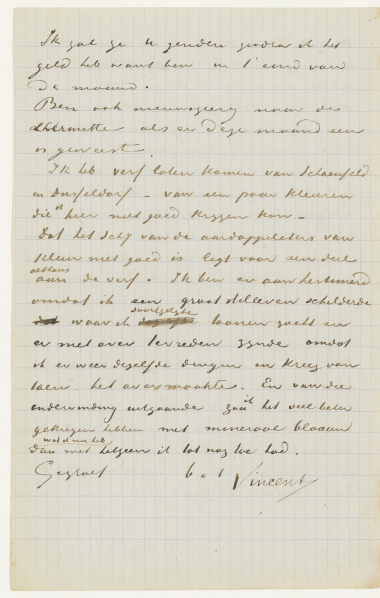 Ik zal ze U zenden zoodra ik het
geld heb want ben in 't eind van
de maand.
Ben ook nieuwsgierig naar de
Lhermitte als er deze maand een
is geweest.
Ik heb verf laten komen van Schoenfeld
in Dusseldorf – van een paar kleuren
die ik hier niet goed krijgen kan –
Dat het schij van de aardappeleters van
kleur niet goed is legt voor een deel
althans aan de verf. Ik ben er aan herinnerd
omdat ik een groot stilleven schilderde
waar ik doorzelfde toonen zocht en
er niet over tevreden zijnde omdat
ik er weer dezelfde dingen in kreeg van
toen. het overmaakte. En van die
ondervinding uitgaande zou ik het veel beter
gekregen hebben met mineraal blaauw
wat ik nu heb
dan met hetgeen ik tot nog toe had.
Gegroet b. a. t. Vincent